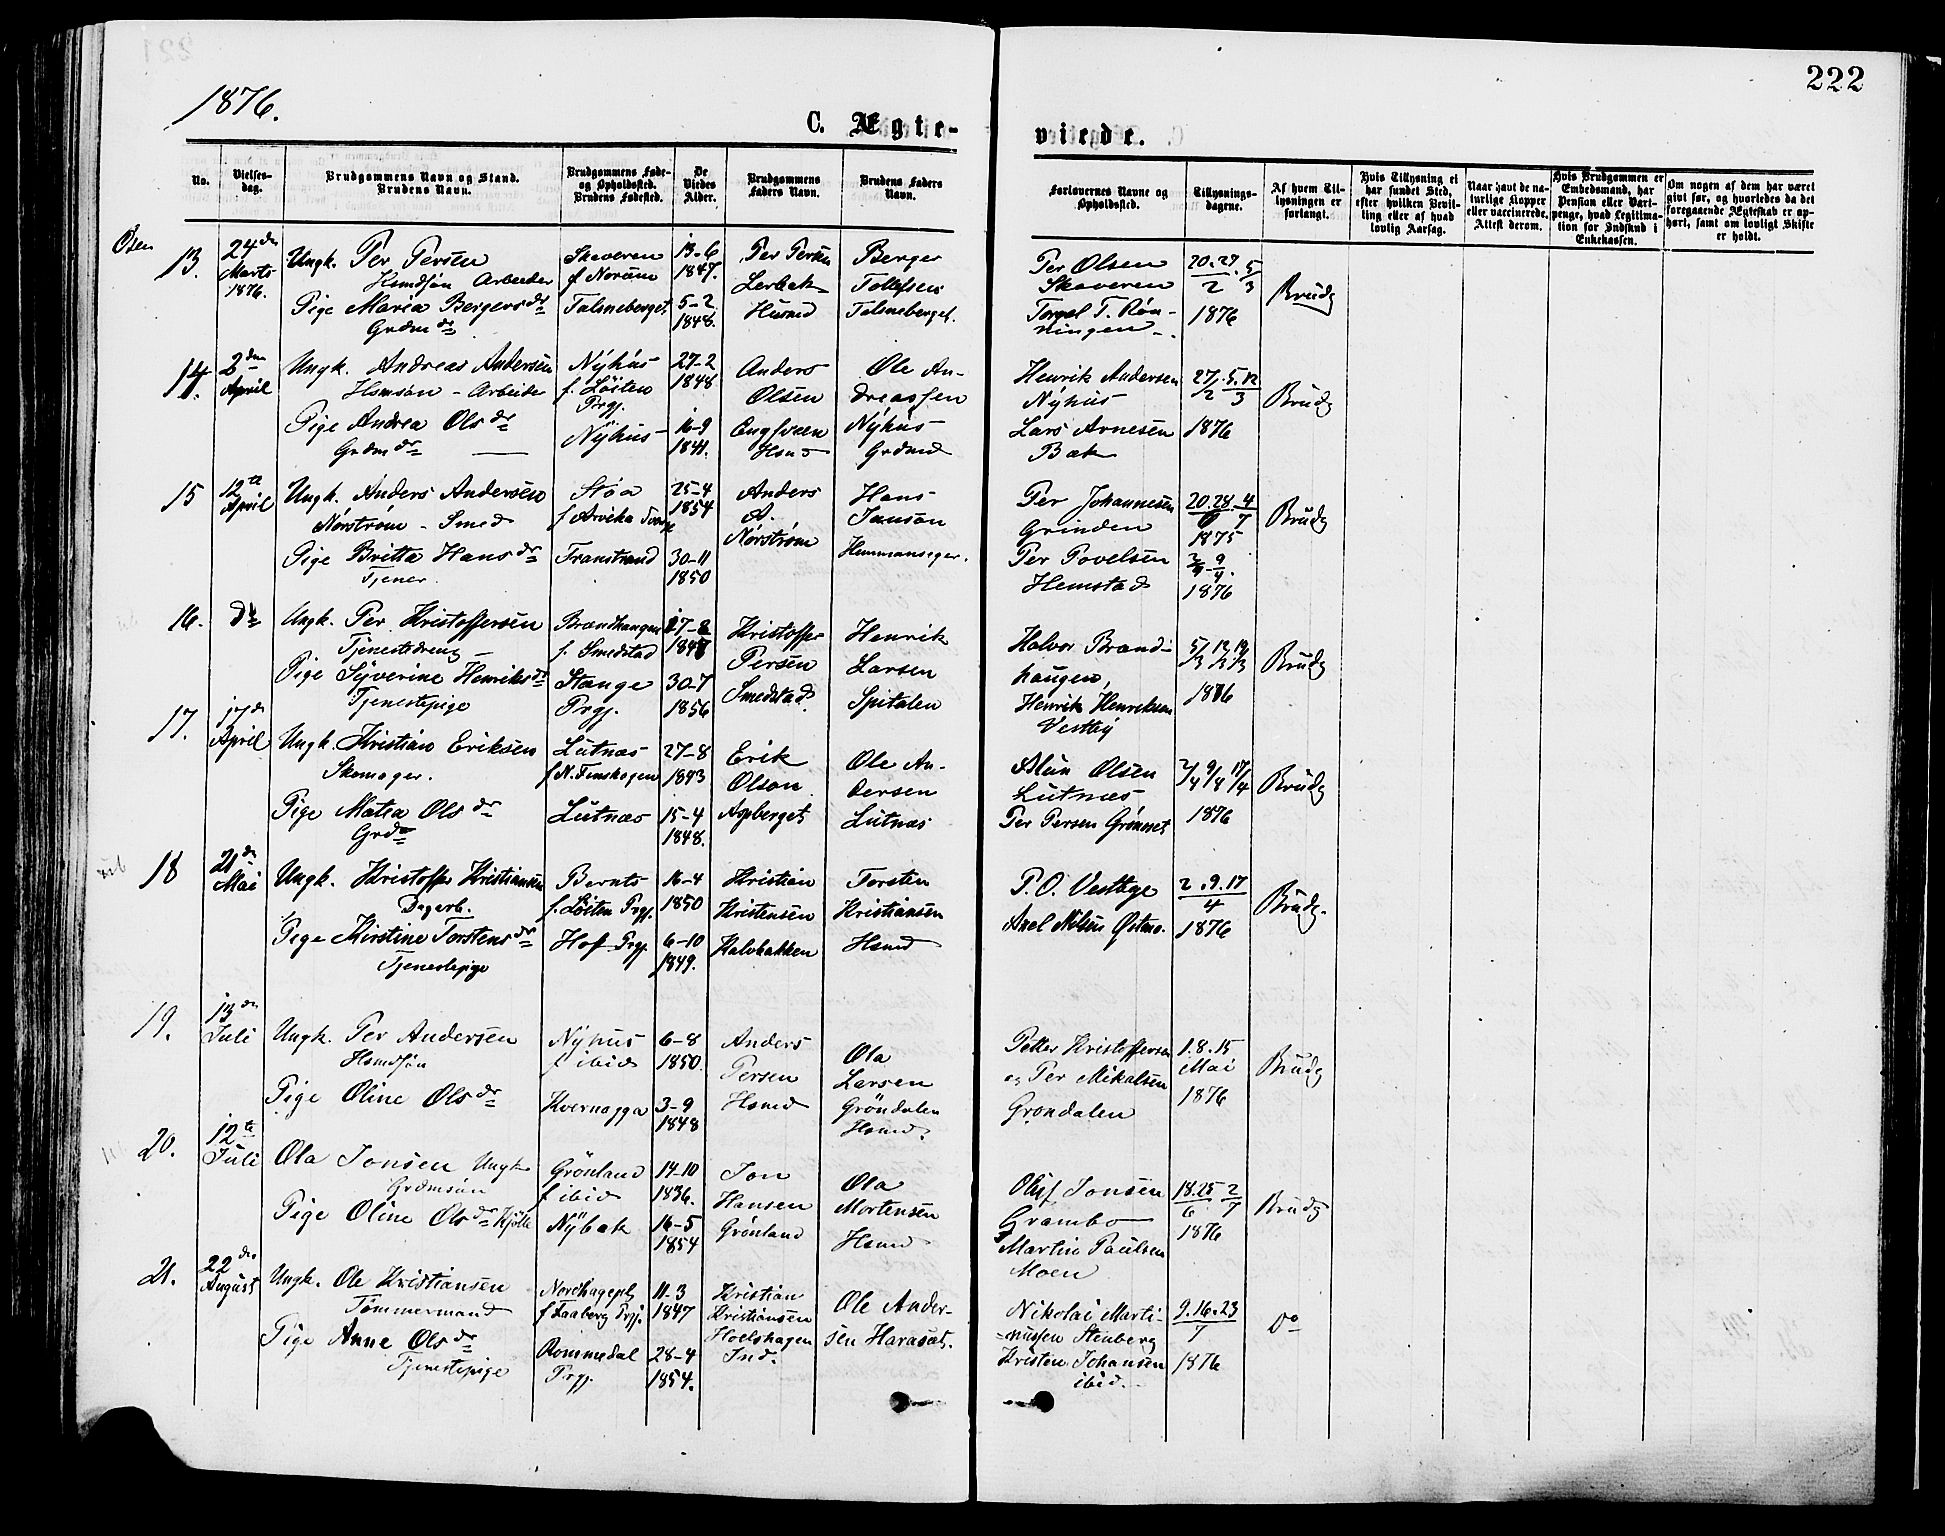 222
1876.
C. Ægte-
viede.
No.
Vielses-
dag.
Brudgommens Navn og Stand.
Brudens Navn.
Brudgommens Føde-
og Opholdssted.
Brudens Fødested.
De
Viedes
Alder.
Brudgommens
Faders Navn.
Brudens Faders
Navn.
Forlovernes Navne og
Opholdssted.
Tillysnings-
dagene.
Af hvem Til-
lysningen er
forlangt.
Hvis Tillysning ei
har fundet Sted,
efter hvilken Bevil-
ling eller af hvad
lovlig Aarsag.
Naar havt de na-
turlige Kopper
eller vaccinerede.
Attest derom.
Hvis Brudgommen er
Embedsmand, har
Pension eller Vart-
penge, hvad Legitima-
tion for Indskud i
Enkekassen.
Om nogen af dem har været
givt før, og hvorledes da det
foregaaende Ægteskab er op-
hørt, samt om lovligt Skifte
er holdt.
Osen
13.
24de
Marts
1876.
Ungk. Per Persen
Hsmdsøn Arbeider
Pige Maria Bergersdr
Grdmdr
Skaveren
f Norum
Talsneberget
13-6
1847.
5-2
1848.
Per Persen
Lerbak
Husmd
Berger
Tollefsen
Talsneberget.
Per Olsen
Skaveren
Torgal T. Røn-
ningen
20.27 5
2 3
1876
Brudg
14.
2den
April
Ungk. Andreas Andersen
Hsmsøn - Arbeider
Pige Andrea Olsdr
Grdmdr
Nÿhus
f. Löiten
Prgj.
Nÿhus
27-2
1848
16-9
1841.
Anders
Olsen
Engsveen
Hsmd
Ole An-
dreassen
Nÿhus
Grdmd
Henrik Andersen
Nÿhus
Lars Arnesen
Bak
27 5.12
2 3
1876
Brudg
15
12te
April
Ungk. Anders Andersen
Nørstrøm - Smed
Pige Britta Hansdr
Tjener.
Støa
f Arvika
Transtrand
25-4
1854
30-11
1850
Anders
A.
Nørstrøm
Hans
Jonson
Hemmanseger.
Per Johannesen
Grinden
Per Povelsen
Hemstad
20.28 4
6 7
1875
2 9
4 4.
1876
Brudg
16.
do
Ungk. Per Kristoffersen
Tjenestedreng
Pige Syverine Henriksdr
Tjenestepige
Brændhaugen
f. Smedstad
Stange
Prgj.
27-8
1847
30-7
1856
Kristoffer
Persen
Smedstad
Henrik
Larsen
Spitalen
Halvor Brænd-
haugen,
Henrik Henriksen
Vestby
5/3 12/3 19/3
1876
Brudg
17.
17de
April
Ungk. Kristian Eriksen
Skomager.
Pige Matea Olsdr
Grdr
Lutnæs
f N. Finskogen
Lutnæs
27-8
1843
15-4
1848.
Erik
Olson
Aspberget
Ole An-
dersen
Lutnæs
Olsen
Lutnæs
Per Persen Grønoset
2/4 9/4 17/4
1876
Brudg
18
21de
Mai
Ungk. Kristoffer Kristiansen
Dagarb.
Pige Kirstine Torstensdr
Tjenestepige
Bernts
f. Löiten Prgj.
Hof Prgj.
16-4
1850
6-10
1849.
Kristian
Kristensen
Kalvbakken
Torsten
Kristiansen
Hsmd
P. O. Vestbye
Axel Nilsen
2.9.17
4
1876
Brudg.
19.
13de
Juli
Ungk. Per Andersen
Hsmdsøn
Pige Oline Olsdr
Nÿhus
f ibid
Kvernagga
6-8
1850.
3-9
1848
Anders
Persen
Hsmd
Ola
Larsen
Gröndalen
Hsmd.
Petter Kristoffersen
og Per Mikalsen
Grøndalen
1.8.15
Mai
1876
Brudg
20.
12te
Juli
Ola Jonsen Ungk
Grdmsøn
Pige Oline Olsdr Kjölle
Grönland
f ibid
Nÿbak
14-10
1836.
16-5
1854
Jon
Hansen
Grønland
Ola
Mortensen
Hsmd
Oluf Jonsen
Grambo
Martin Paulsen
Moen
18.25 2
6 7
1876
Brudg
21.
22de
August
Ungk. Ole Kristiansen
Tømmermand
Pige Anne Olsdr
Tjenestepige
Nordhagepl
f Faaberg Prgj.
Rommedal
Prgj.
11-3
1847
28-4
1854.
Kristian
Kristiansen
Hoelshagen
Ind.
Ole Ander-
sen Haraset.
Nikolai Marti-
nussen Stenberg
Kristen Johansen
ibid.
9.16.23
7
1876
do